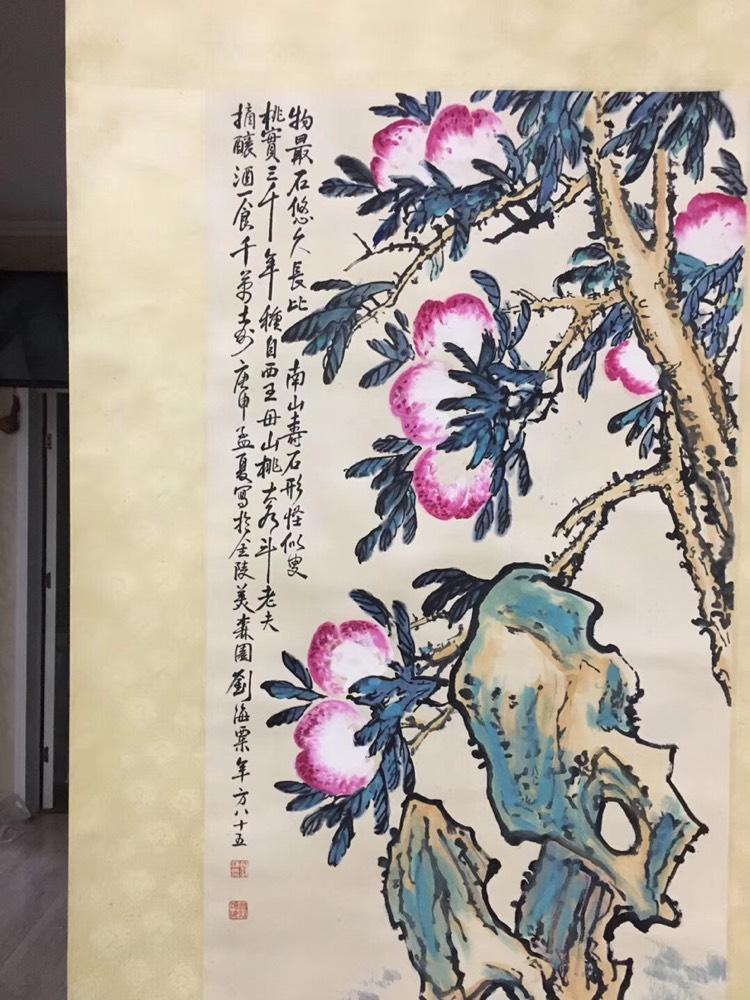 物最石悠久長比 南山壽石形怪似叟
桃實三千年種自西王母山桃大如斗老夫
摘釀酒一食千萬壽 庚申孟夏寫於金陵美森園劉海粟年方八十五